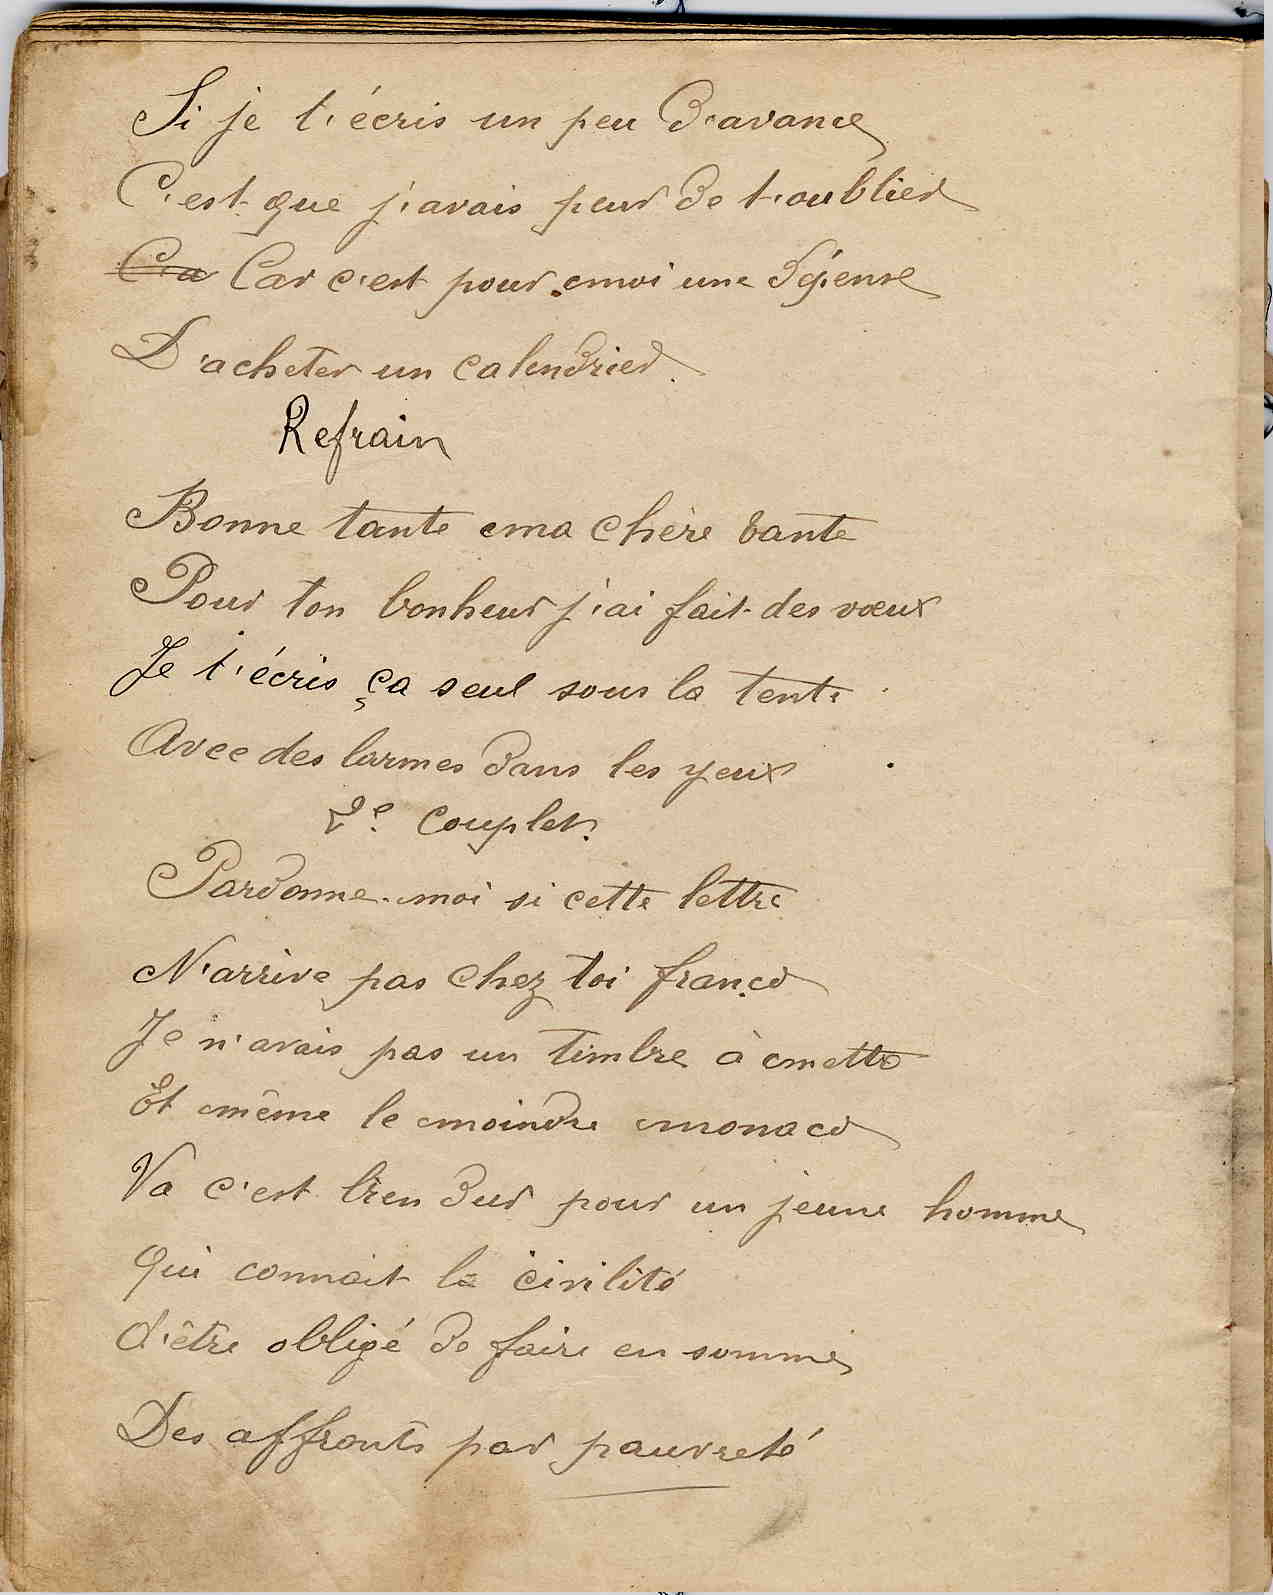 Si je t'écris un peu d'avance
C'est que j'avais peur de t'oublier
C'a Car c'est pour moi une dépense
D'acheter un calendrier.
Refrain
Bonne tante ma chère tante
Pour ton bonheur j'ai fait des vœux
Je t'écris ça seul sous la tente
Avec des larmes dans les yeux
2e Couplet.
Pardonne-moi si cette lettre
N'arrive pas chez toi franco
Je n'avais pas un timbre à mettre
Et même le moindre monaco
Va c'est bien dur pour un jeune homme
Qui connait la civilité
d'être obligé de faire en somme
Des affronts par pauvreté